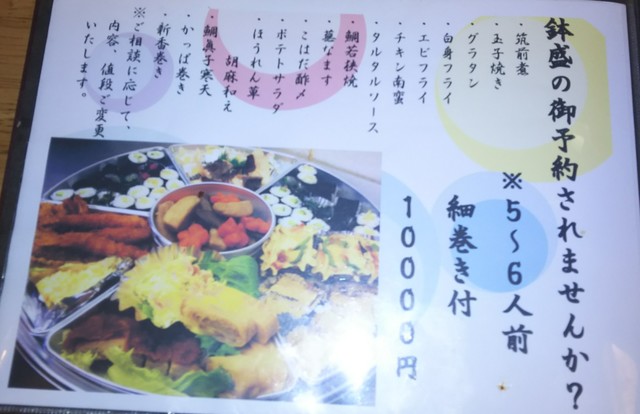 鉢盛の御予約されませんか？
※５～６人前
細巻き付
１００００円
・筑前煮
・玉子焼き
・グラタン
・白身フライ
・エビフライ
・チキン南蛮
タルタルソース
・鯛若狭焼
・墓なます
・こはだ酢〆
・ポテトサラダ
・ほうれん草
胡麻和え
・鯛真子寒天
・かっぱ巻き
・新香巻き
※ご相談に応じて、
内容・値段ご変更
いたします。